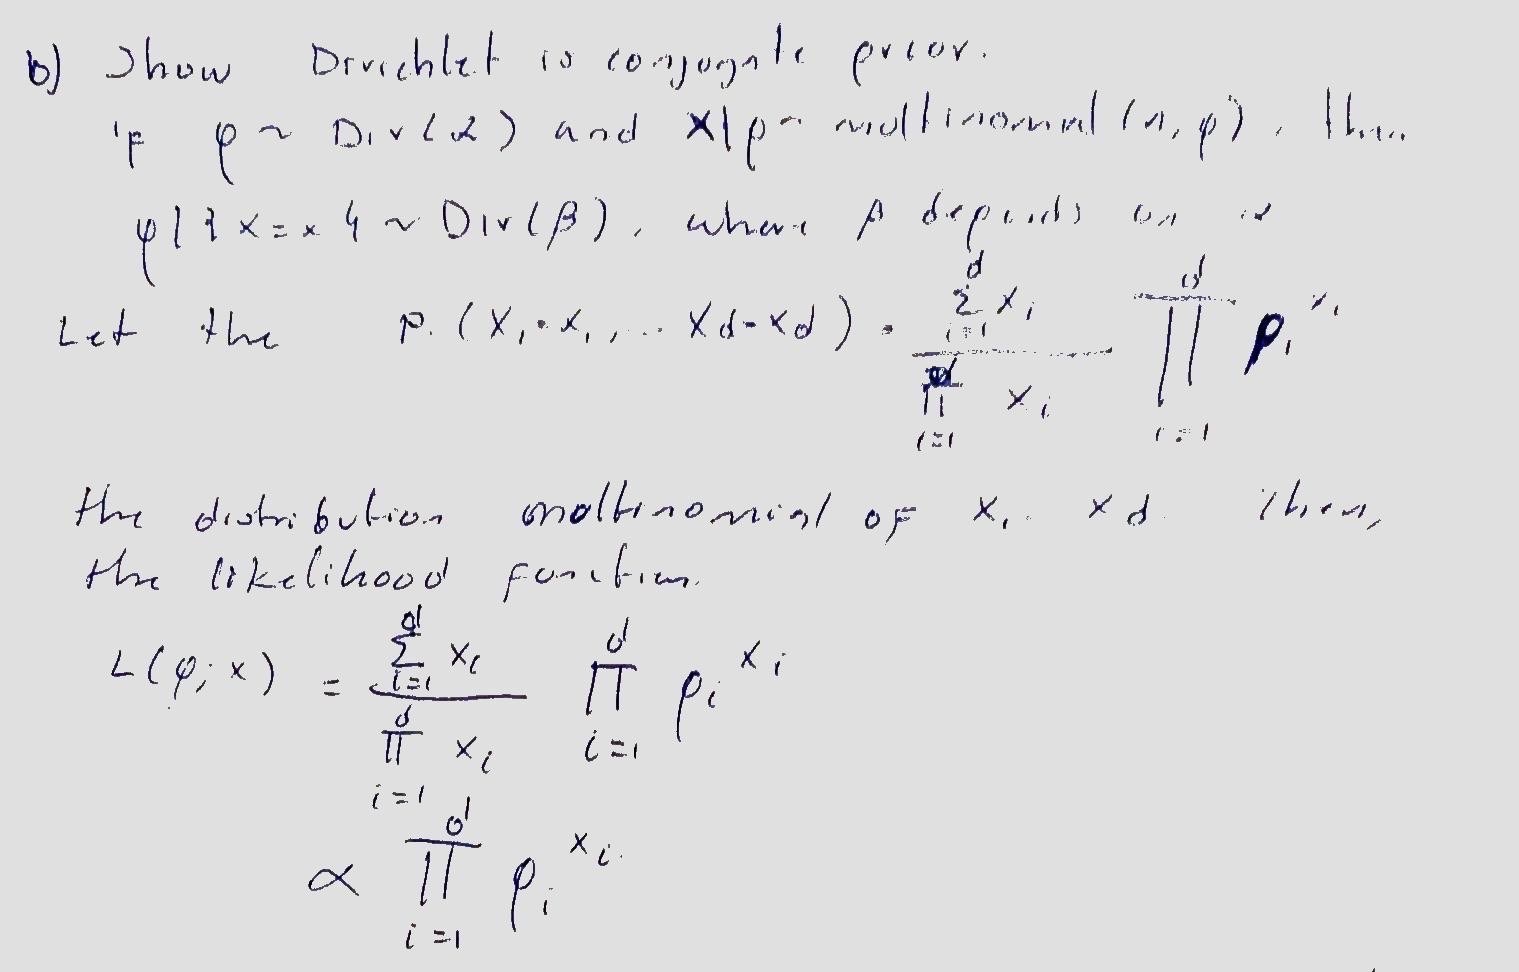 b) Show Dirichlet is conjugate prior.
if p ~ Dir(α) and X|p ~ multinomial (n, p), then
p|{X=x} ~ Dir(β), where β depends on α
Let the P(X₁=x₁, ... Xd=xd) = \frac{\sum_{i=1}^{d} x_i}{\prod_{i=1}^{d} x_i} \prod_{i=1}^{d} p_i^{x_i}
the distribution multinomial of X₁.. Xd. Then,
the likelihood function.
L(p; x) = \frac{\sum_{i=1}^{d} x_i}{\prod_{i=1}^{d} x_i} \prod_{i=1}^{d} p_i^{x_i}
∝ \prod_{i=1}^{d} p_i^{x_i}